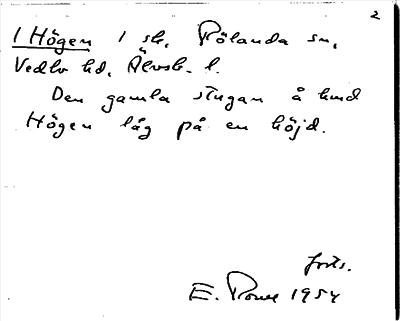 2
1 Högen 1 sk. Rölanda sn,
Vedbo hd. Älvsb. l.
Den gamla stugan å hmd
Högen låg på en höjd.
forts.
E. 1954